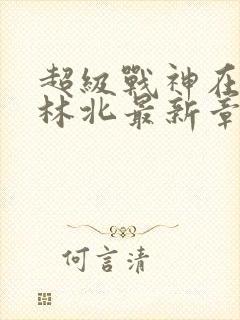 超級戰神在
林北最新章
何言清